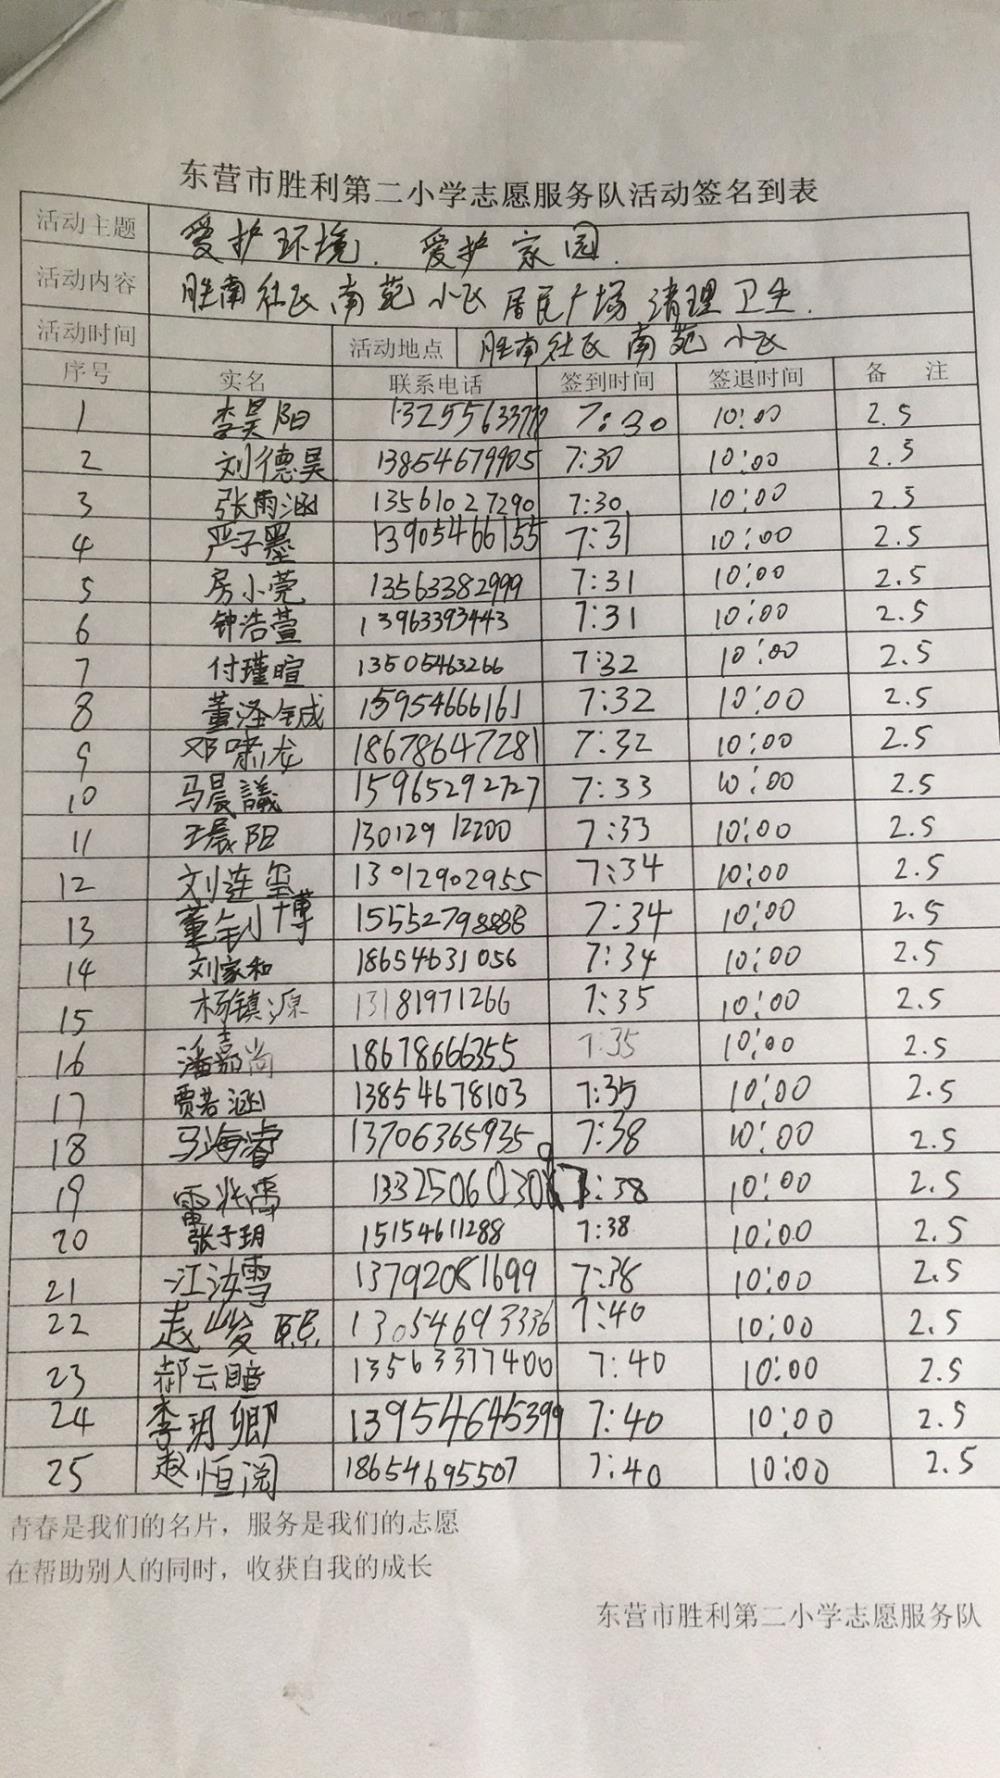 东营市胜利第二小学志愿服务队活动签名到表
活动主题 爱护环境. 爱护家园.
活动内容 胜南社区南苑小区居民广场清理卫生.
活动时间 活动地点 胜南社区南苑小区
序号 实名 联系电话 签到时间 签退时间 备 注
1 李昊阳 7:30 10:00 2.5
2 刘德昊 13854679905 7:30 10:00 2.5
3 张雨涵 13561027290 7:30 10:00 2.5
4 严子墨 13905466155 7:31 10:00 2.5
5 房小莞 13563382999 7:31 10:00 2.5
6 钟浩萱 13963393443 7:31 10:00 2.5
7 付瑾暄 13505463266 7:32 10:00 2.5
8 董泽铖 15954666161 7:32 10:00 2.5
9 邓啸龙 18678647281 7:32 10:00 2.5
10 马晨議 15965292727 7:33 10:00 2.5
11 王晨阳 13012912200 7:33 10:00 2.5
12 刘连玺 13012902955 7:34 10:00 2.5
13 董钊博 15552798888 7:34 10:00 2.5
14 刘家和 18654631056 7:34 10:00 2.5
15 杨镇源 13181971266 7:35 10:00 2.5
16 潘嘉尚 18678666355 7:35 10:00 2.5
17 贾若涵 13854678103 7:35 10:00 2.5
18 马海睿 13706365935 7:38 10:00 2.5
19 雷兆禹 7:38 10:00 2.5
20 张于玥 15154611288 7:38 10:00 2.5
21 江汝雪 13792081699 7:38 10:00 2.5
22 赵峻熙 13054693336 7:40 10:00 2.5
23 郝云暄 13563377400 7:40 10:00 2.5
24 李玥卿 13954645399 7:40 10:00 2.5
25 赵恒阅 18654695507 7:40 10:00 2.5
青春是我们的名片，服务是我们的志愿
在帮助别人的同时，收获自我的成长
东营市胜利第二小学志愿服务队